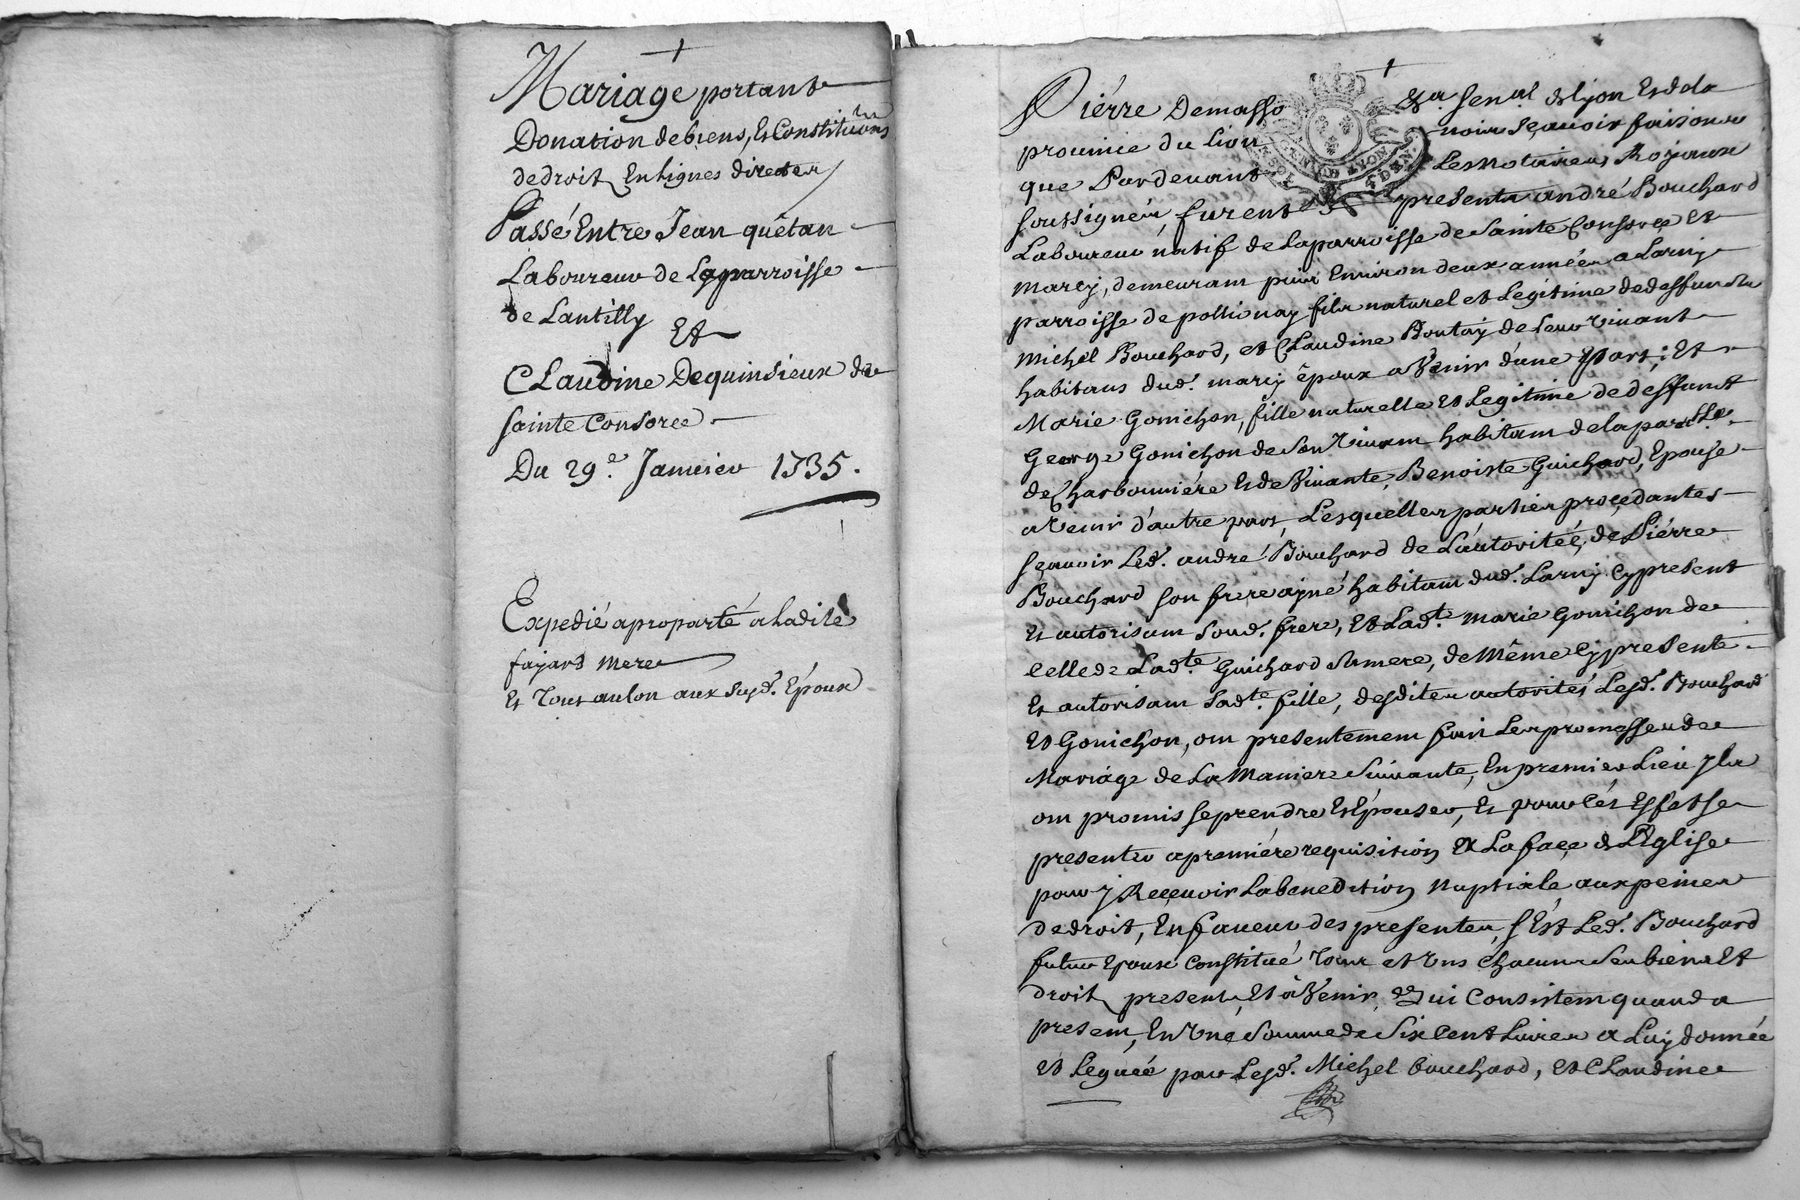 Mariage portant
Donation de biens, Et Constituõns
de droit En Lignes directes
Passé Entre Jean quêtan
Laboureur de Laparroisse
de Lantilly
Et
Claudine Dequinsieux de
sainte Consorce
Du 29e. Janvier 1735.
Expedié aproparté a Ladite
fayard mere
Et Tout aulon aux susd. Époux
Piérre Demasso
&a senal de Lyon Et de la
SENSOL GEN DE LYON 4 DEN
province du Lion
nois sçavoir faisons
que Pardevant
Les Notaires Royaux
soussignés, furent
presents andré Bouchard
Laboureur natif de Laparroisse de Sainte Consorce Et
Marcy, demeurant puis Environ deux années a Larny
parroisse de pollionay fils naturel et Legitime de deffunts
Michel Bouchard, et Claudine Boutay de Leur Vivant
habitans dud. marcy époux a Venir d'une Part; Et
Marie Gonichon, fille naturelle et Legitime de déffunt
George Gonichon de son Vivant habitant de la parsse.
de Charbonniére Et de Vivante, Benoiste Guichard, Epouse
a Venir d'autre part, Lesquelles parties proçedantes
sçavoir Led. andré Bouchard de L'autoritée, de Piérre
Bouchard son frere ayné habitant dud. Larny Cy present
Et autorisant Soud. frere, Et Ladte. Marie Gonichon de
Celle de Ladte Guichard sa mere, de Même Cy presente
Et autorisant Sadte. fille, desdites autorités Lesd. Bouchard
Et Gonichon, ont presentement fait Les promesses de
Mariage de La Maniere Suivante, En premier Lieu Ils
ont promis se prendre Et Épouser, Et pour cét Effet se
presenter a premiére requisition a La façe de L'Eglise
pour y Reçevoir La benediction Nuptiale aux peines
de droit, En faveur des presentes, s'Est Led. Bouchard
futur Epoux Constitué Tous et Uns chacuns Ses biens Et
droits presents Et à Venir, Qui Consistent quand a
present, En Une Somme de Six Cent Livres a Luy donnée
Et Leguée par Lesd. Michel bouchard, et Claudine